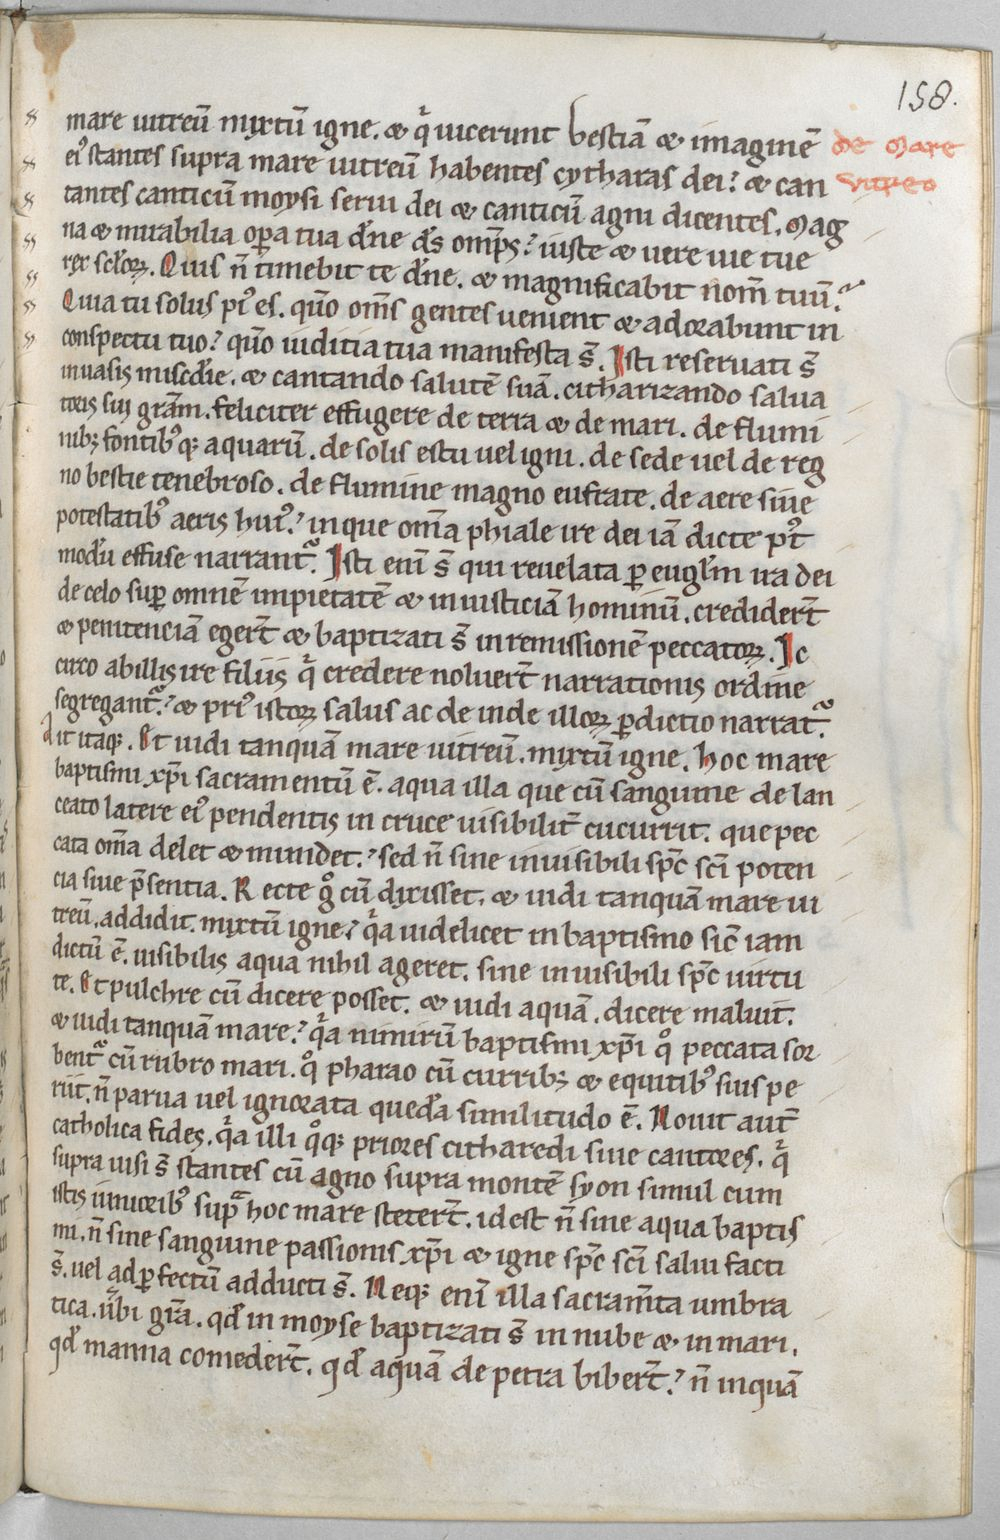 158.
mare uitreū mixtū igne. & qͥ uicerunt bestiā & imaginē
de Mare
eiꝰ stantes supra mare uitreū habentes cytharas dei? & can
vitreo
tantes canticū moysi serui dei & canticū agni dicentes. Mag
na & mirabilia oꝑa tua dn̄e ds̄ omp̄s? iuste & uere uie tue
rex scl̄oꝝ. Quis n̄ timebit te dn̄e. & magnificabit nom̄ tuū?
Quia tu solus piꝰ es. qm̄o oms̄ gentes uenient & adorabunt in
conspectu tuo? qm̄o iuditia tua manifesta s̄. Isti reseruati s̄
in uasis misc̄die. & cantando salutē suā. citharizando salua
toris sui grām. feliciter effugere de terra & de mari. de flumi
nibꝫ fontibꝰqꝫ aquarū. de solis estu uel igni. de sede uel de reg
no bestie tenebroso. de flumine magno eufrate. de aere siue
potestatibꝰ aeris huiꝰ? in que om̄a phiale ire dei iā dicte p̄t
modū effuse narrantᷣ. Isti eni̅ s̄ qui reuelata ꝑ eugl̄m ira dei
de celo suꝑ omnē impietatē & iniusticiā hominū. credider̄t
& penitenciā eger̄t & baptizati s̄ in remissionē peccatoꝝ. Ic
circo ab illis ire filiis qͥ credere noluer̄t narrationis ordine
segregantᷣ? & priꝰ istoꝝ salus ac deinde illoꝝ ꝑdictio narratᷣ.
dit itaqꝫ. Et uidi tanquā mare uitreū. mixtū igne. hoc mare
baptismi xp̄i sacramentū ē. aqua illa que cū sanguine de lan
ceato latere eiꝰ pendentis in cruce uisibilit̄ cucurrit. que pec
cata om̄a delet & mundet? sed n̄ sine inuisibili sp̄c sc̄i poten
cia siue p̄sentia. Recte gͦ cū dixisset. & uidi tanquā mare ui
treū. addidit. mixtū igne? qͥa uidelicet in baptismo sic̄ iam
dictū ē. uisibilis aqua nihil ageret. sine inuisibili sp̄c uirtu
te. Et pulchre cū dicere posset. & uidi aquā. dicere maluit.
& uidi tanquā mare? qͥa nimirū baptismi xp̄i qͦ peccata sor
bentᷣ cū rubro mari. qͦ pharao cū curribꝫ & equitibꝰ suis pe
riit. n̄ parua uel ignorata quedā similitudo ē. Nouit aut̄
catholica fides. qͥa illi qͦqꝫ priores citharedi siue cantores. qͥ
supra uisi s̄ stantes cū agno supra montē syon simul cum
istis iunioribꝰ supᷓ hoc mare steter̄t. id est n̄ sine aqua baptis
mi. n̄ sine sanguine passionis xp̄i & igne sp̄c sc̄i salui facti
s̄. uel ad ꝑfectū adducti s̄. Neqꝫ eni̅ illa sacram̄ta umbra
tica. u̅bi gr̄a. qd̄ in moyse baptizati s̄ in nube & in mari.
qd̄ manna comeder̄t. qd̄ aquā de petra biber̄t? n̄ inquā